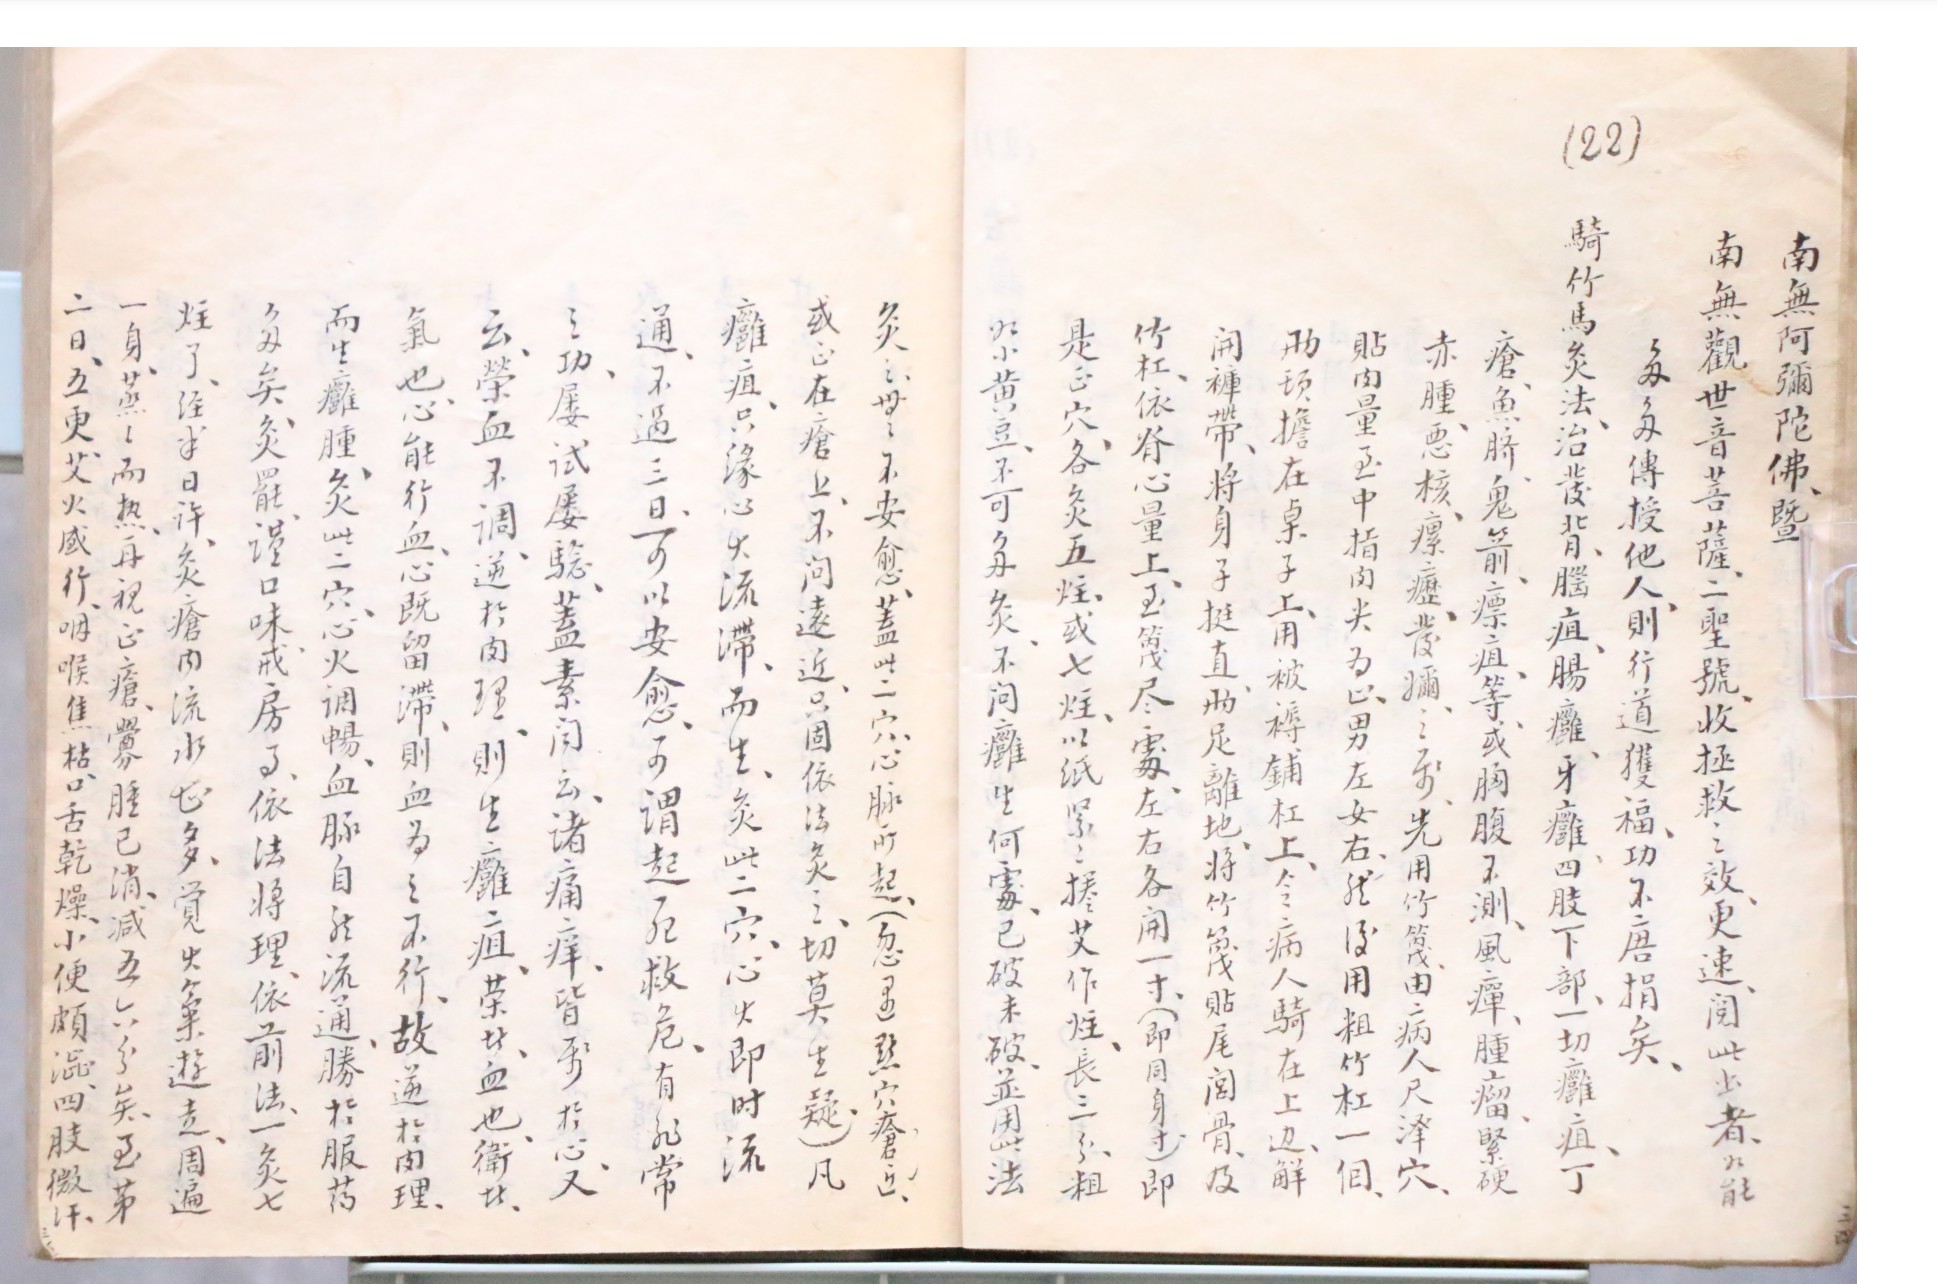 (22)
南無阿彌陀佛、暨
南無觀世音菩薩、二聖號、收拯救之效、更速、閱此出者、如能
多多傳授他人、則行道獲福、功不唐捐矣、
騎竹馬灸法、治發背、腦疽、腸癰、牙癰、四肢下部、一切癰疽、丁
瘡、魚臍、鬼箭、瘭疽、等、或胸腹不測、風癉、腫瘤、緊硬
赤腫、悪核、瘰癧、發㜷、之形、先用竹篾、由病人尺泽穴、
貼肉量至中指肉尖为止、男左女右、然後用粗竹杠一個、
两頭擔在桌子上、用被褥鋪杠上、令病人騎在上边、解
開褲帶、將身子挺直、两足離地、將竹篾貼尾閭骨、及
竹杠、依脊心量上、至篾尽處、左右各開一寸、(即同身寸)即
是正穴、各灸五炷、或七炷、以紙緊之捲艾作炷、長三分、粗
如小黄豆、不可多灸、不问癰生何處、已破未破、並用此法
灸之、無不安愈、蓋此二穴、心脉所起、(忽遇點穴瘡近、
或正在瘡上、不问遠近、只固依法灸之、切莫生疑)凡
癰疽、只缘心火流滞、而生、灸此二穴、心火即时流
通、不過三日、可以安愈、可謂起死救危、有非常
之功、屡试屡驗、蓋素问云、诸痛痒、皆形於心、又
云、榮血不调、逆於肉理、則生癰疽、荣者、血也、衛者、
氣也、心能行血、心既留滞、則血为之不行、故逆於肉理、
而生癰腫、灸此二穴、心火调暢、血脉自能流通、勝於服药
多矣、灸罷、謹口味、戒房事、依法將理、依前法、一灸七
炷了、经半日许、灸瘡内流水甚多、覚火氣遊走、周遍
一身、蒸之而热、再視正瘡、釁腫已消、减五六分矣、至第
二日、五更、艾火盛行、咽喉焦枯、口舌乾燥、小便頗澁、四肢微汗、
三四